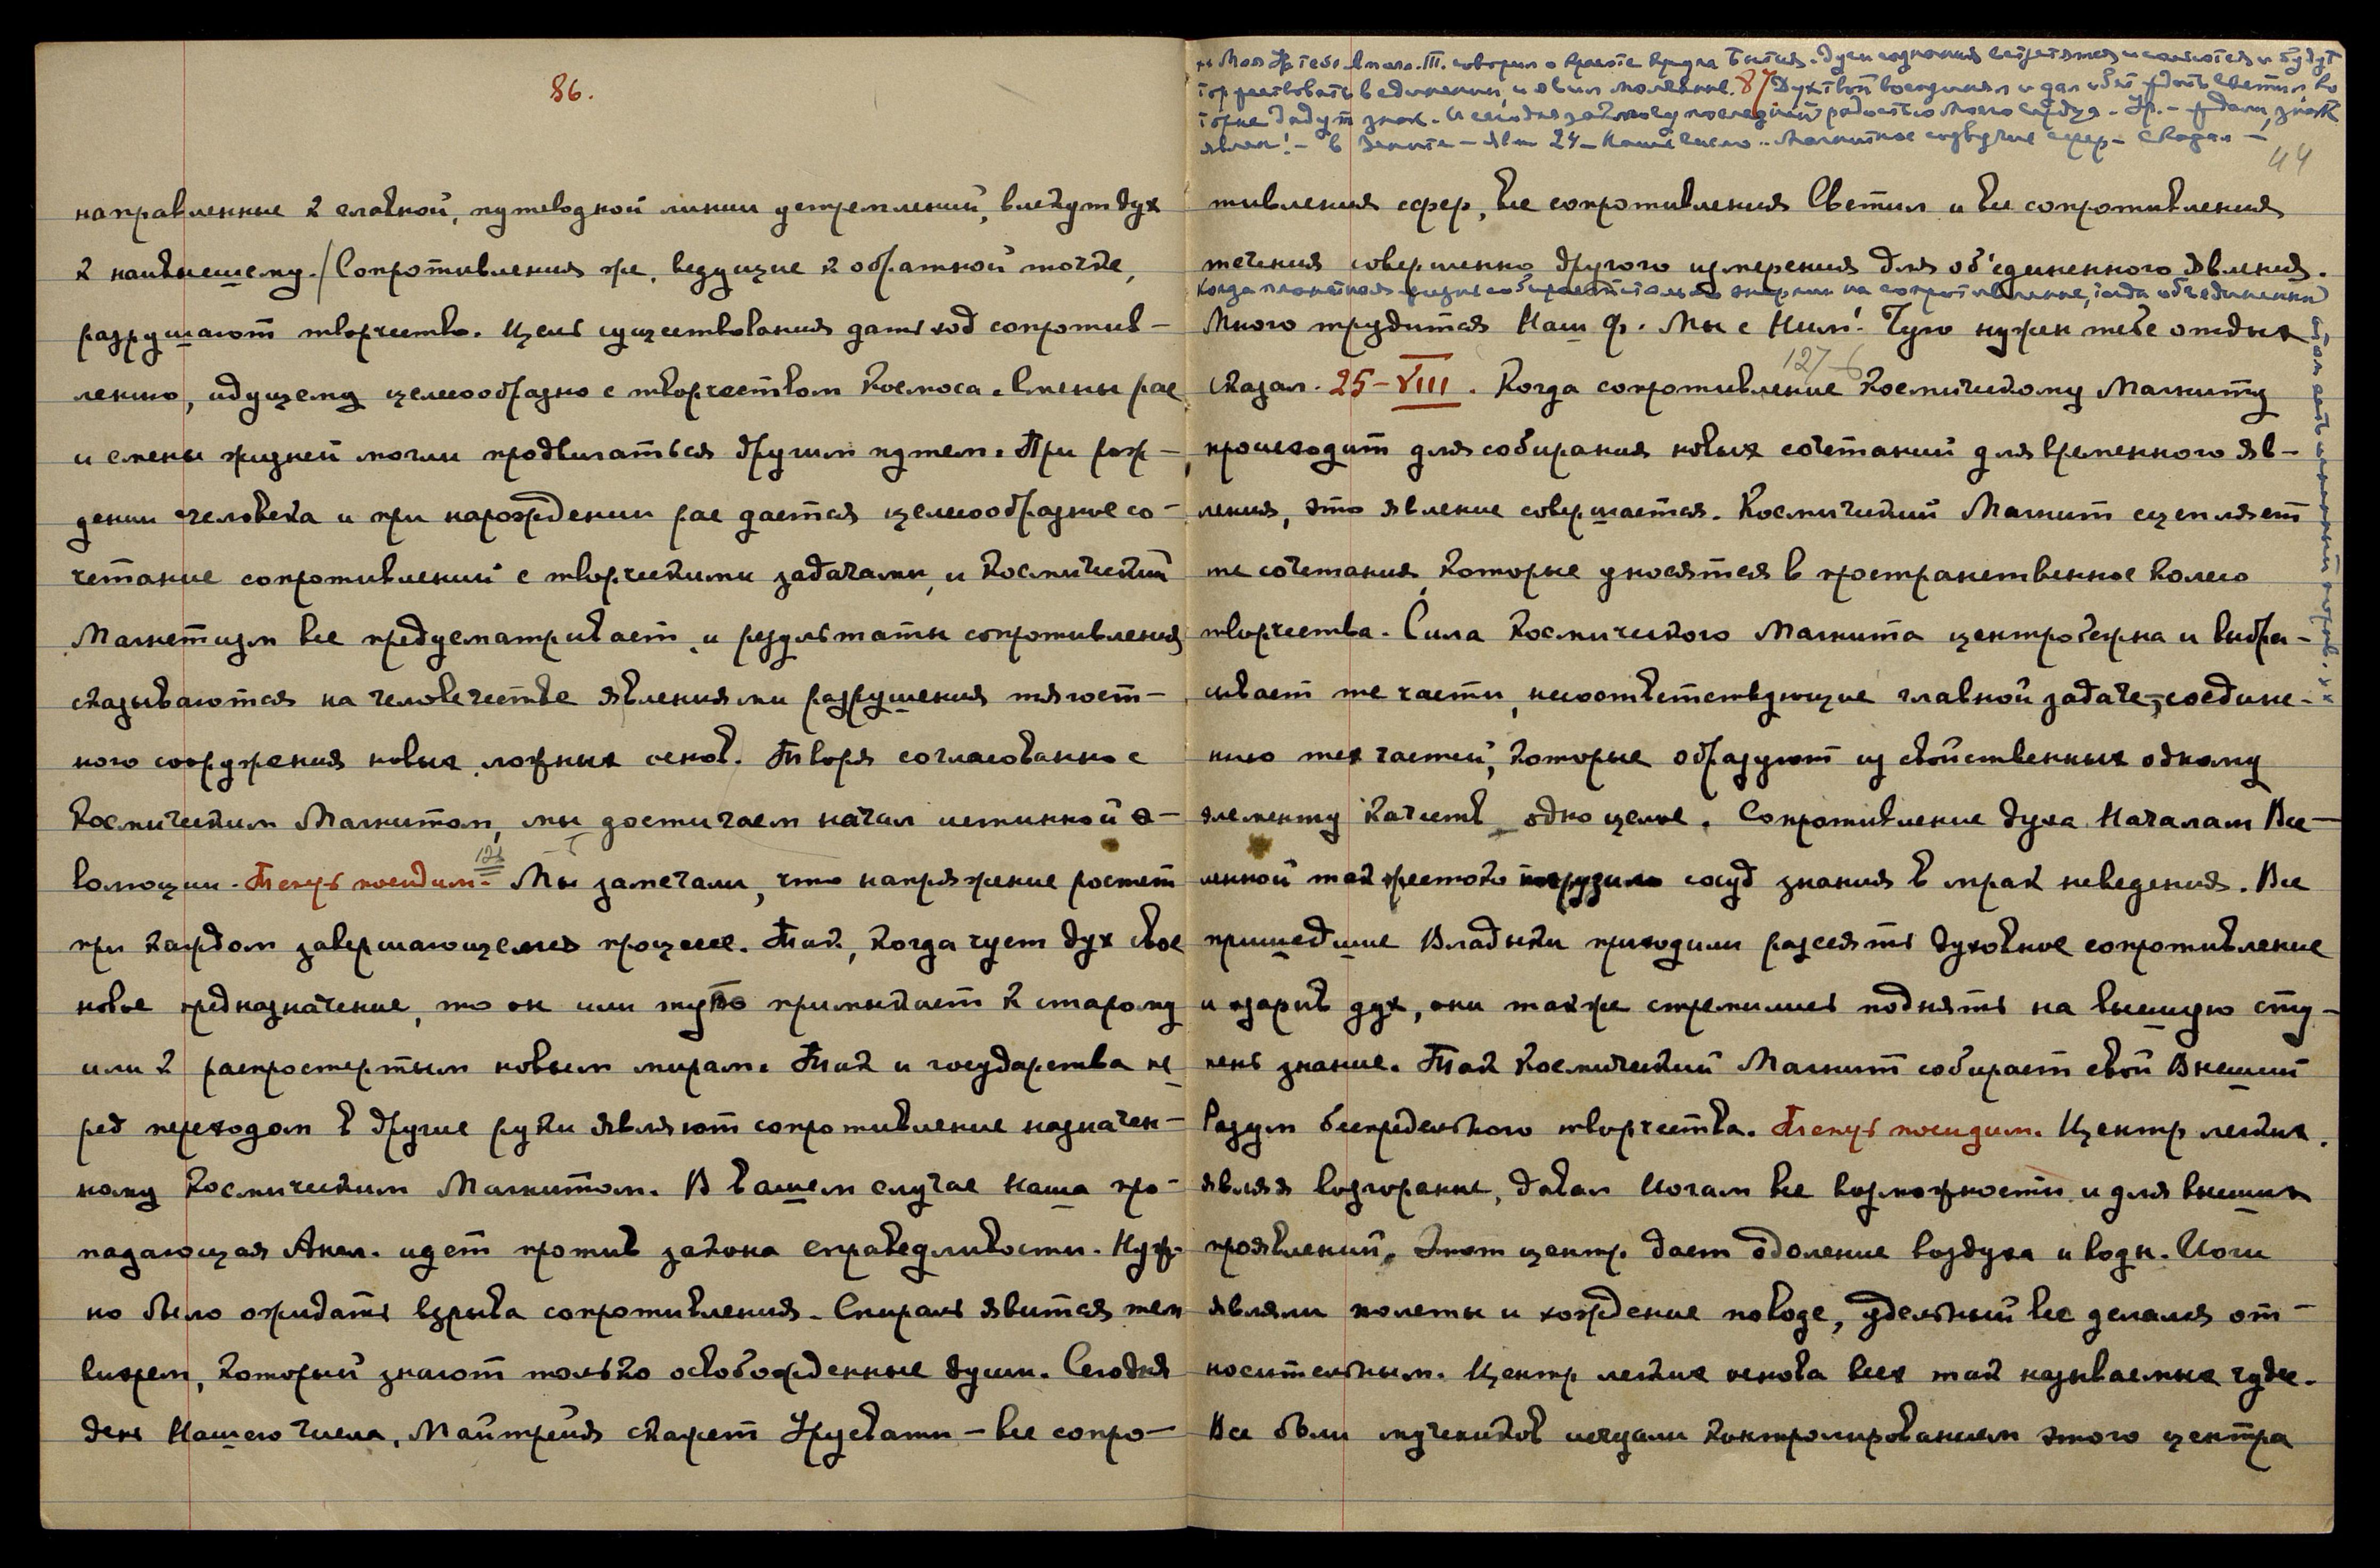 86.
направленные к главной, путеводной линии устремлений, влекут дух
к наивысшему./Сопротивления же, ведущие к обратной точке,
разрушают творчество. Цель существования дать ход сопротив-
лению, идущему целесообразно с творчеством Космоса. Смены рас
и смены жизней могли продвигаться другим путем. При рож-
дении человека и при нарождении рас дается целесообразное со-
четание сопротивлений с творческими задачами, и Космический
Магнетизм все предусматривает, и результаты сопротивления
сказываются на человечестве явлениями разрушения тягост-
ного сооружения новых ложных основ. Творя согласованно с
Космическим Магнитом, мы достигаем начал истинной э-
волюции. Теперь посидим. Мы замечали, что напряжение растет
при каждом завершающемся процессе. Так, когда чует дух свое
новое предназначение, то он или туго примыкает к старому
или к распростертым новым мирам. Так и государства пе
ред переходом в другие руки являют сопротивление назначен-
ному Космическим Магнитом. В вашем случае наша про-
падающая Англ. идет против закона справедливости. Нуж-
но было ожидать взрыва сопротивления. Спираль явится тем
вихрем, который знают только освобожденные души. Сегодня
день Нашего Числа, Майтрейя скажет Урусвати – все сопро-
87
торжествовать в единении, и явил моление. Дух твой воспринял и дал
торые дадут знак. И сегодня
явлен! – в Зените – явл 24 – Наше число. Магнитное созвучие сфер – Сказал –
44
тивления сфер, все сопротивления Светил и все сопротивления
течения совершенно другого измерения для об'единенного явления.
Когда планетная жизнь собирает столько энергии на сопротивление, тогда объединенный
Много трудится Наш Ф. Мы с Ним! Чую нужен тебе отдых
Сказал. 25-VIII. Когда сопротивление Космическому Магниту
127
происходит для собирания новых сочетаний для временного яв-
ления, это явление совершается. Космический Магнит сцепляет
те сочетания, которые уносятся в пространственное колесо
творчества. Сила Космического Магнита центробежна и выбра-
сывает те части, несоответствующие главной задаче, соедине-
нию тех частей, которые образуют из свойственных одному
элементу качеств одно целое. Сопротивление духа Началам Все-
ленной так жестоко погрузило сосуд знания в мрак неведения. Все
пришедшие Владыки приходили рассеять духовное сопротивление
и озарив дух, они также стремились поднять на высшую сту-
пень знание. Так Космический Магнит собирает свой Высший
Разум беспредельного творчества. Теперь посидим. Центр легких,
являя возгорание, давал Йогам все возможности и для высших
проявлений. Этот центр. дает одоление воздуха и воды. Йоги
являли полеты и хождение по воде, удельный вес делался от-
носительным. Центр легких основа всех так называемых чудес.
Все боли мучеников исчезали контролированием этого центра